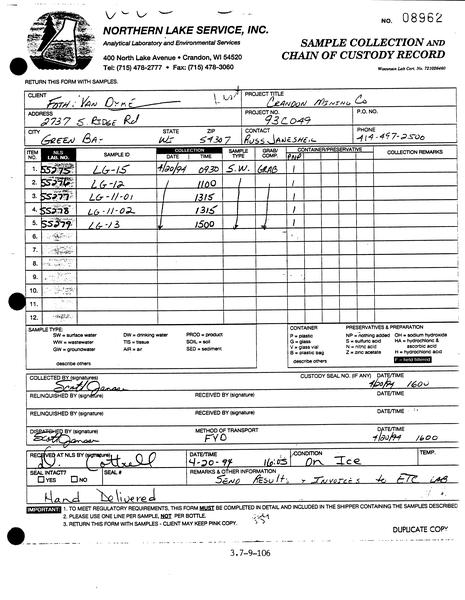 NO. 08962
NORTHERN LAKE SERVICE, INC.
Analytical Laboratory and Environmental Services
400 North Lake Avenue • Crandon, WI 54520
Tel: (715) 478-2777 • Fax: (715) 478-3060
SAMPLE COLLECTION AND
CHAIN OF CUSTODY RECORD
Wisconsin Lab Cert. No. 721026460
RETURN THIS FORM WITH SAMPLES.
CLIENT Foth: Van Dyke PROJECT TITLE Crandon Mining Co
ADDRESS 2737 S. Ridge Rd PROJECT NO. 93C049 P.O. NO.
CITY Green Bay STATE WI ZIP 54307 CONTACT Russ Janeshek PHONE 414-497-2500
ITEM NO. NLS LAB. NO. SAMPLE ID COLLECTION DATE TIME SAMPLE TYPE GRAB/COMP. CONTAINER/PRESERVATIVE COLLECTION REMARKS
PNP
1. 55275 LG-15 4/20/94 0930 S.W. GRAB 1
2. 55276 LG-12 1100 1
3. 55277 LG-11-01 1315 1
4. 55278 LG-11-02 1315 1
5. 55279 LG-13 1500 1
6.
7.
8.
9.
10.
11.
12.
SAMPLE TYPE:
SW = surface water DW = drinking water PROD = product
WW = wastewater TIS = tissue SOIL = soil
GW = groundwater AIR = air SED = sediment
describe others
CONTAINER PRESERVATIVES & PREPARATION
P = plastic NP = nothing added OH = sodium hydroxide
G = glass S = sulfuric acid HA = hydrochloric &
V = glass vial N = nitric acid ascorbic acid
B = plastic bag Z = zinc acetate H = hydrochloric acid
describe others F = field filtered
COLLECTED BY (signature) CUSTODY SEAL NO. (IF ANY) DATE/TIME
4/20/94 1600
RELINQUISHED BY (signature) RECEIVED BY (signature) DATE/TIME
RELINQUISHED BY (signature) RECEIVED BY (signature) DATE/TIME
DISPATCHED BY (signature) METHOD OF TRANSPORT DATE/TIME
FVD 4/20/94 1600
RECEIVED AT NLS BY (signature) DATE/TIME CONDITION TEMP.
D. Cottrell 4-20-94 16:05 On Ice
SEAL INTACT? SEAL # REMARKS & OTHER INFORMATION
YES NO Send Results & Invoices to ETC LAB
Hand Delivered
IMPORTANT: 1. TO MEET REGULATORY REQUIREMENTS, THIS FORM MUST BE COMPLETED IN DETAIL AND INCLUDED IN THE SHIPPER CONTAINING THE SAMPLES DESCRIBED
2. PLEASE USE ONE LINE PER SAMPLE, NOT PER BOTTLE.
3. RETURN THIS FORM WITH SAMPLES - CLIENT MAY KEEP PINK COPY.
DUPLICATE COPY
3.7-9-106